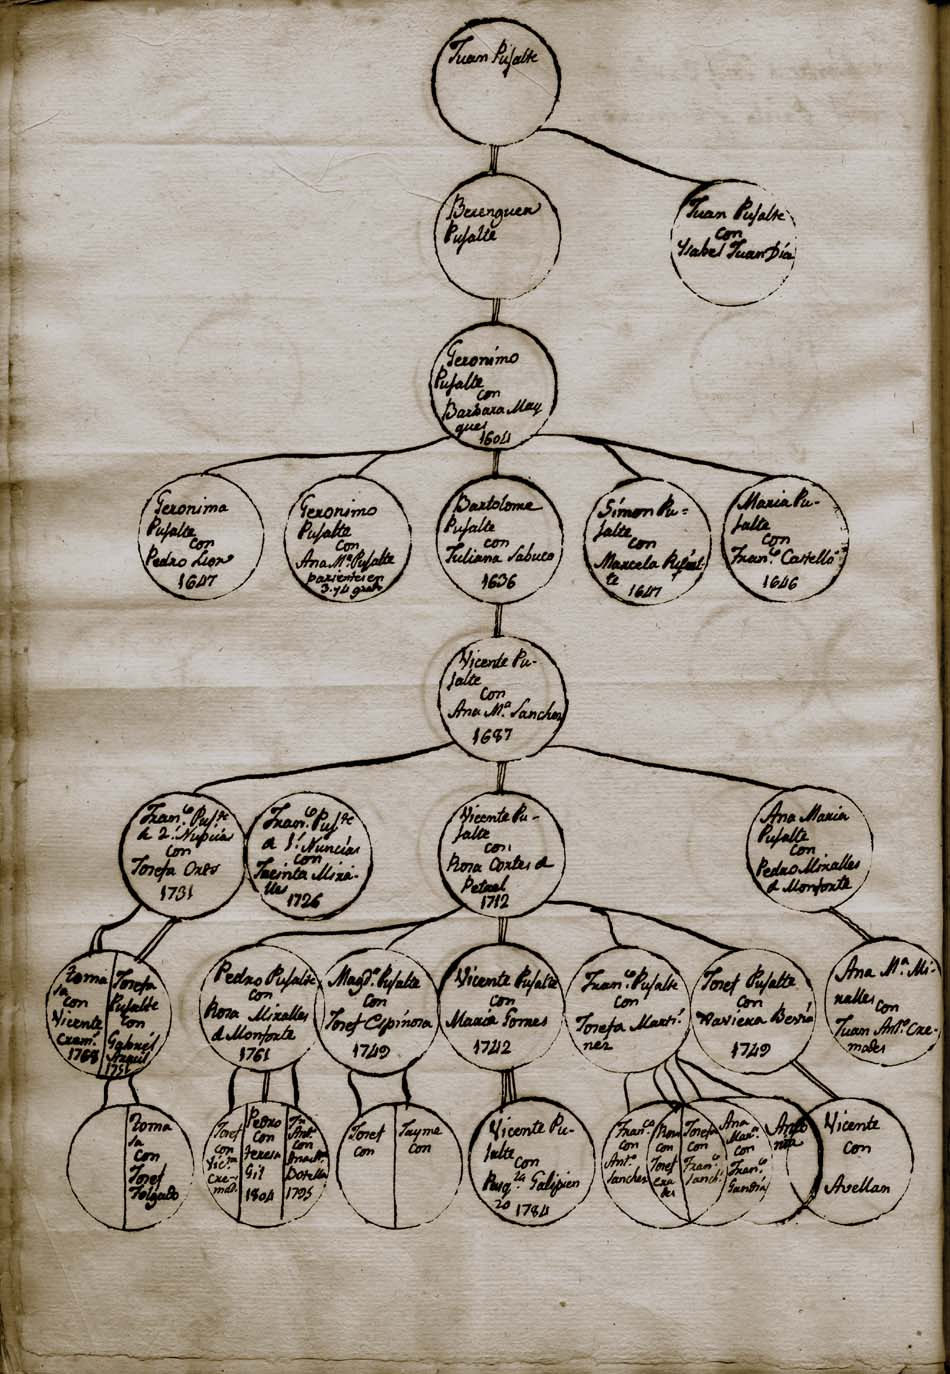 Juan Pujalte
Berenguer
Pujalte
Juan Pujalte
con
Ysabel Juan Día
Geronimo
Pujalte
con
Barbara May
ques
1604
Geronima
Pujalte
con
Pedro Lion
1647
Geronimo
Pujalte
con
Ana Mª Pujalte
parientes en
3. y 4 grado
Bartolome
Pujalte
con
Juliana Sabuco
1636
Simon Pu=
jalte
con
Marcela
te
1647
Maria Pu-
jalte
con
Franco. Castelló
1646
Vicente Pu-
jalte
con
Ana Mª Sanches
1687
Franco. Pujte
de 2ª Nupcias
con
Josefa
1731
Franco. Pujte
de 1ª Nuncias
con
Jacinta Mira-
lles
1726
Vicente Pu-
jalte
con
Rosa Cortes de
Petrel
1712
Ana Maria
Pujalte
con
Pedro Miralles
de Monforte
Toma
sa
con
Vicente
Crem.
1768
Josefa
Pujalte
con
Gabriel
1751
Pedro Pujalte
con
Rosa Miralles
de Monforte
1761
Magda Pujalte
con
Josef Espinosa
1749
Vicente Pujalte
con
Maria Tornes
1742
Franco Pujalte
con
Josefa Marti
nez
Josef Pujalte
con
Xaviera Beviá
1749
Ana Mª Mi-
ralles
con
Juan Anto. Cre-
mades
Toma
sa
con
Josef
Folgado
Josef
con
Victa
Cre-
mad.
Pedro
con
Teresa
Gil
1804
Jn
Anto
con
Ana Mª
Botella
1795
Josef
con
Jayme
con
Vicente Pu-
jalte
con
Pasqla Galipien
zo 1784
Franca
con
Anto
Sanches
Rosa
con
Josef
Josefa
con
Franco
Sanch.
Ana
Mara
con
Franco
Gandia
Anto
nia
Vicente
con
Avellan